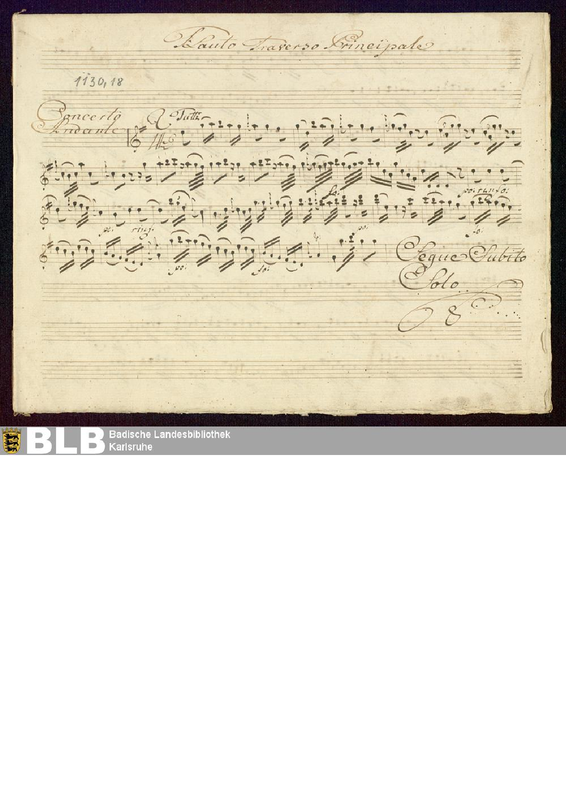 Flauto Traverso Principale
1130,18
Concerto
Andante
Tutti
fo.
po. rinfo.
po. rinf.
po.
fo.
po.
fo.
Segue Subito
Solo.
BLB Badische Landesbibliothek
Karlsruhe